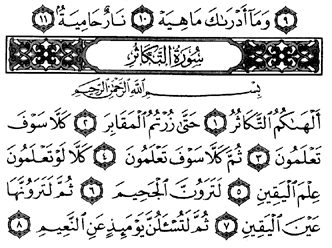 ٩ وَمَآ أَدْرَىٰكَ مَا هِيَهْ ١٠ نَارٌ حَامِيَةٌۢ ١١
سُورَةُ التَّكَاثُرِ
بِسْمِ ٱللَّهِ ٱلرَّحْمَٰنِ ٱلرَّحِيمِ
أَلْهَىٰكُمُ ٱلتَّكَاثُرُ ١ حَتَّىٰ زُرْتُمُ ٱلْمَقَابِرَ ٢ كَلَّا سَوْفَ
تَعْلَمُونَ ٣ ثُمَّ كَلَّا سَوْفَ تَعْلَمُونَ ٤ كَلَّا لَوْ تَعْلَمُونَ
عِلْمَ ٱلْيَقِينِ ٥ لَتَرَوُنَّ ٱلْجَحِيمَ ٦ ثُمَّ لَتَرَوُنَّهَا
عَيْنَ ٱلْيَقِينِ ٧ ثُمَّ لَتُسْـَٔلُنَّ يَوْمَئِذٍ عَنِ ٱلنَّعِيمِ ٨